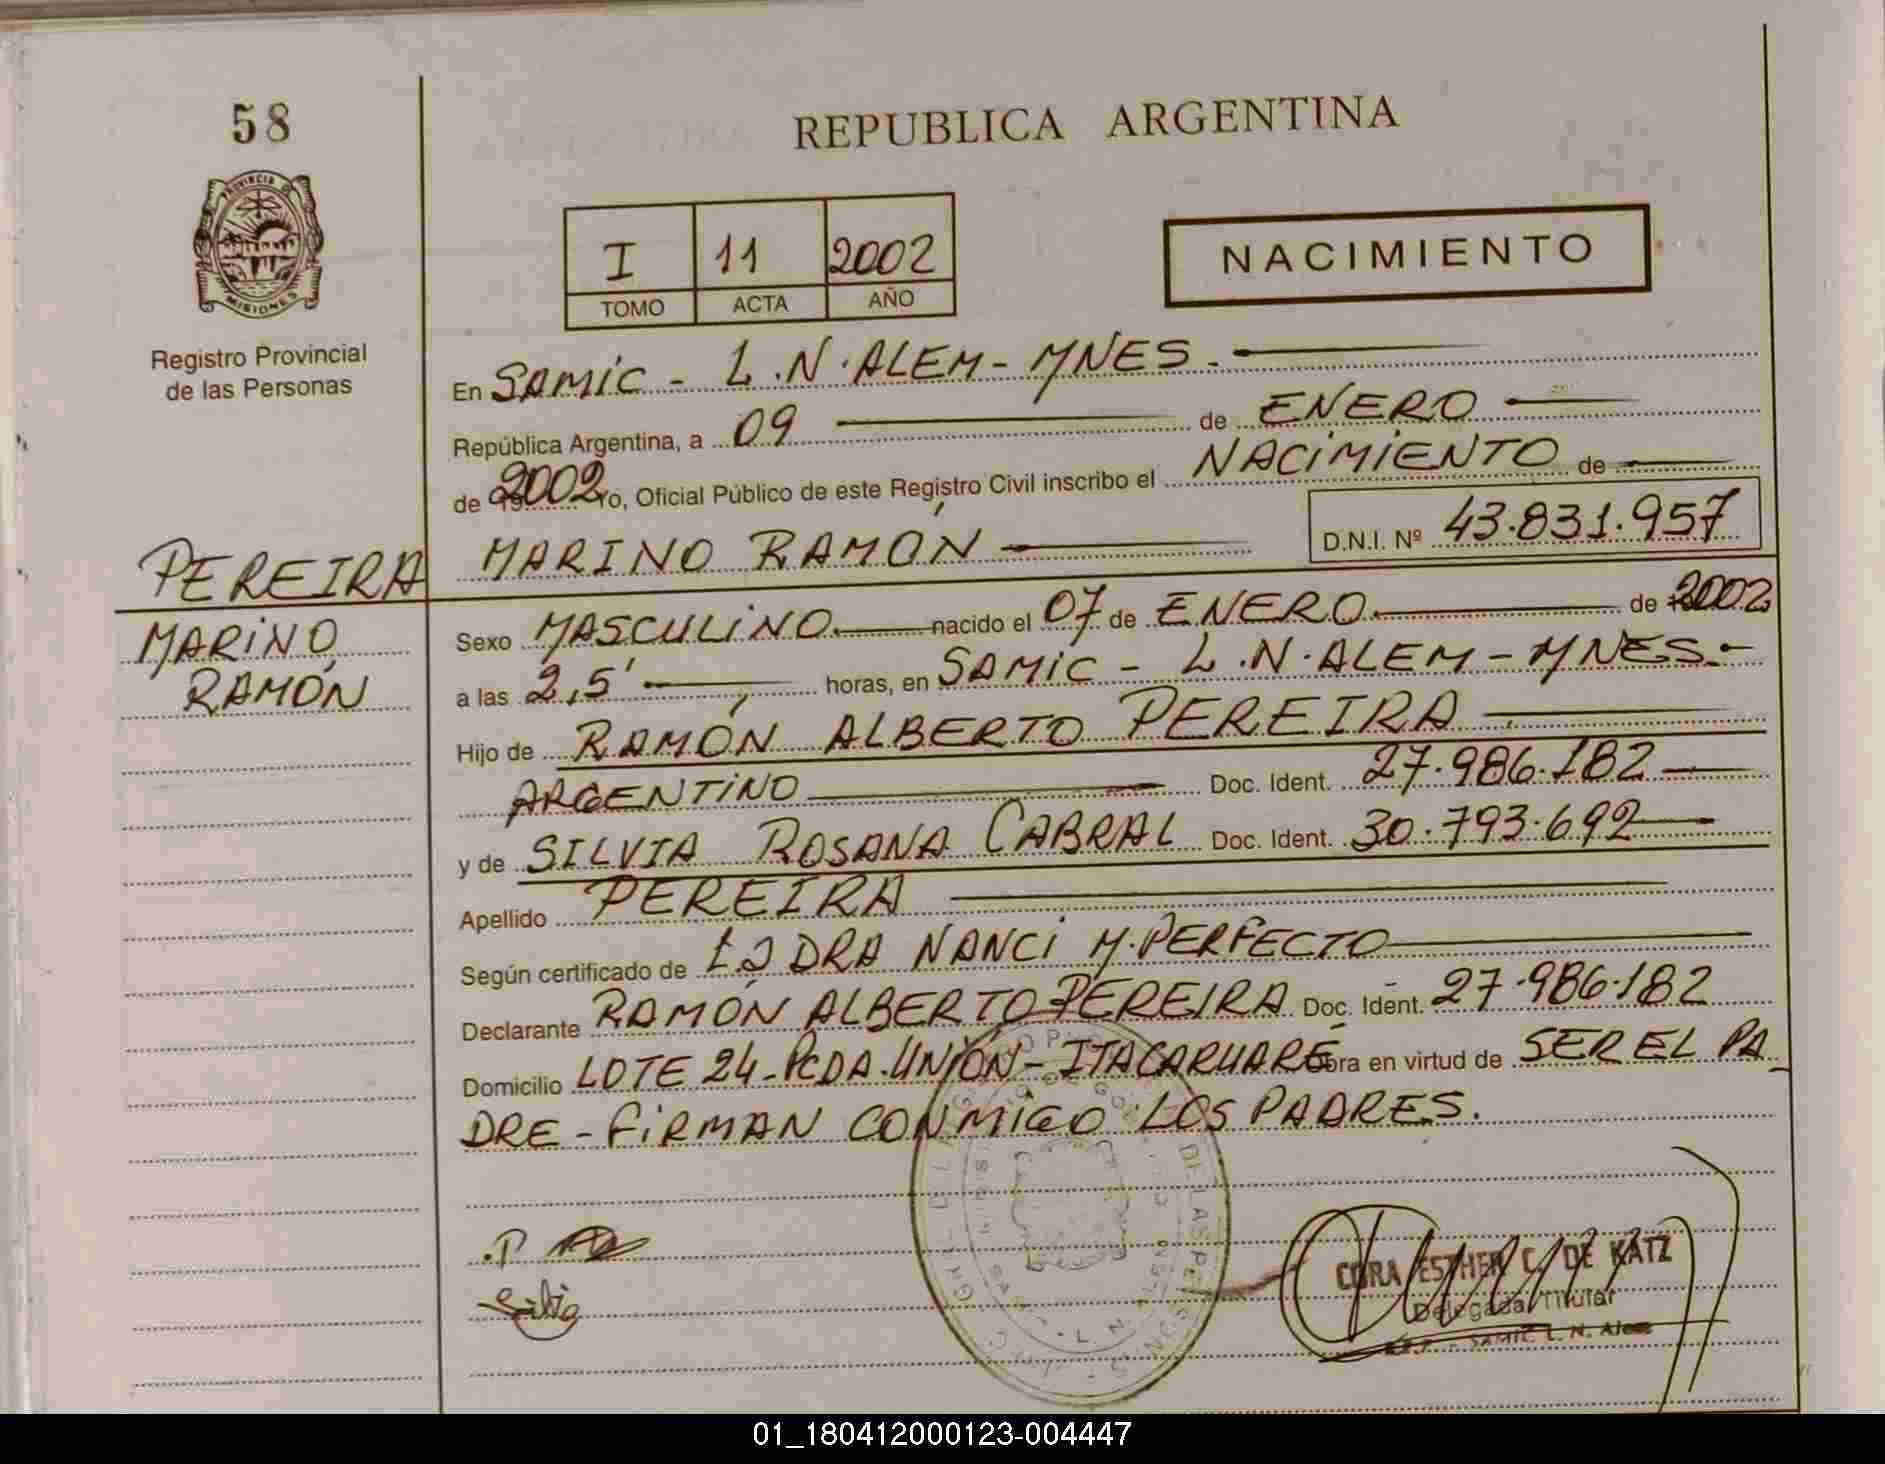 58
REPUBLICA ARGENTINA
PROVINCIA DE
MISIONES
Registro Provincial
de las Personas
I 11 2002
TOMO ACTA AÑO
NACIMIENTO
En SAMIC - L.N. ALEM - MNES.
República Argentina, a 09 de ENERO
de 2002 Yo, Oficial Público de este Registro Civil inscribo el NACIMIENTO de
MARINO RAMÓN D.N.I. Nº 43.831.957
PEREIRA
MARINO
RAMÓN
Sexo MASCULINO nacido el 07 de ENERO de 2002
a las 2,5' horas, en SAMIC - L.N. ALEM - MNES.-
Hijo de RAMÓN ALBERTO PEREIRA
ARGENTINO Doc. Ident. 27.986.182
y de SILVIA ROSANA CABRAL Doc. Ident. 30.793.692
Apellido PEREIRA
Según certificado de DRA NANCI M. PERFECTO
Declarante RAMÓN ALBERTO PEREIRA Doc. Ident. 27.986.182
Domicilio LOTE 24 - PCDA. UNIÓN - ITACARUARÉ Obra en virtud de SER EL PA
DRE - FIRMAN CONMIGO LOS PADRES.
CORA ESTHER C. DE KATZ
Delegada Titular
SAMIC L. N. Alem
01_180412000123-004447